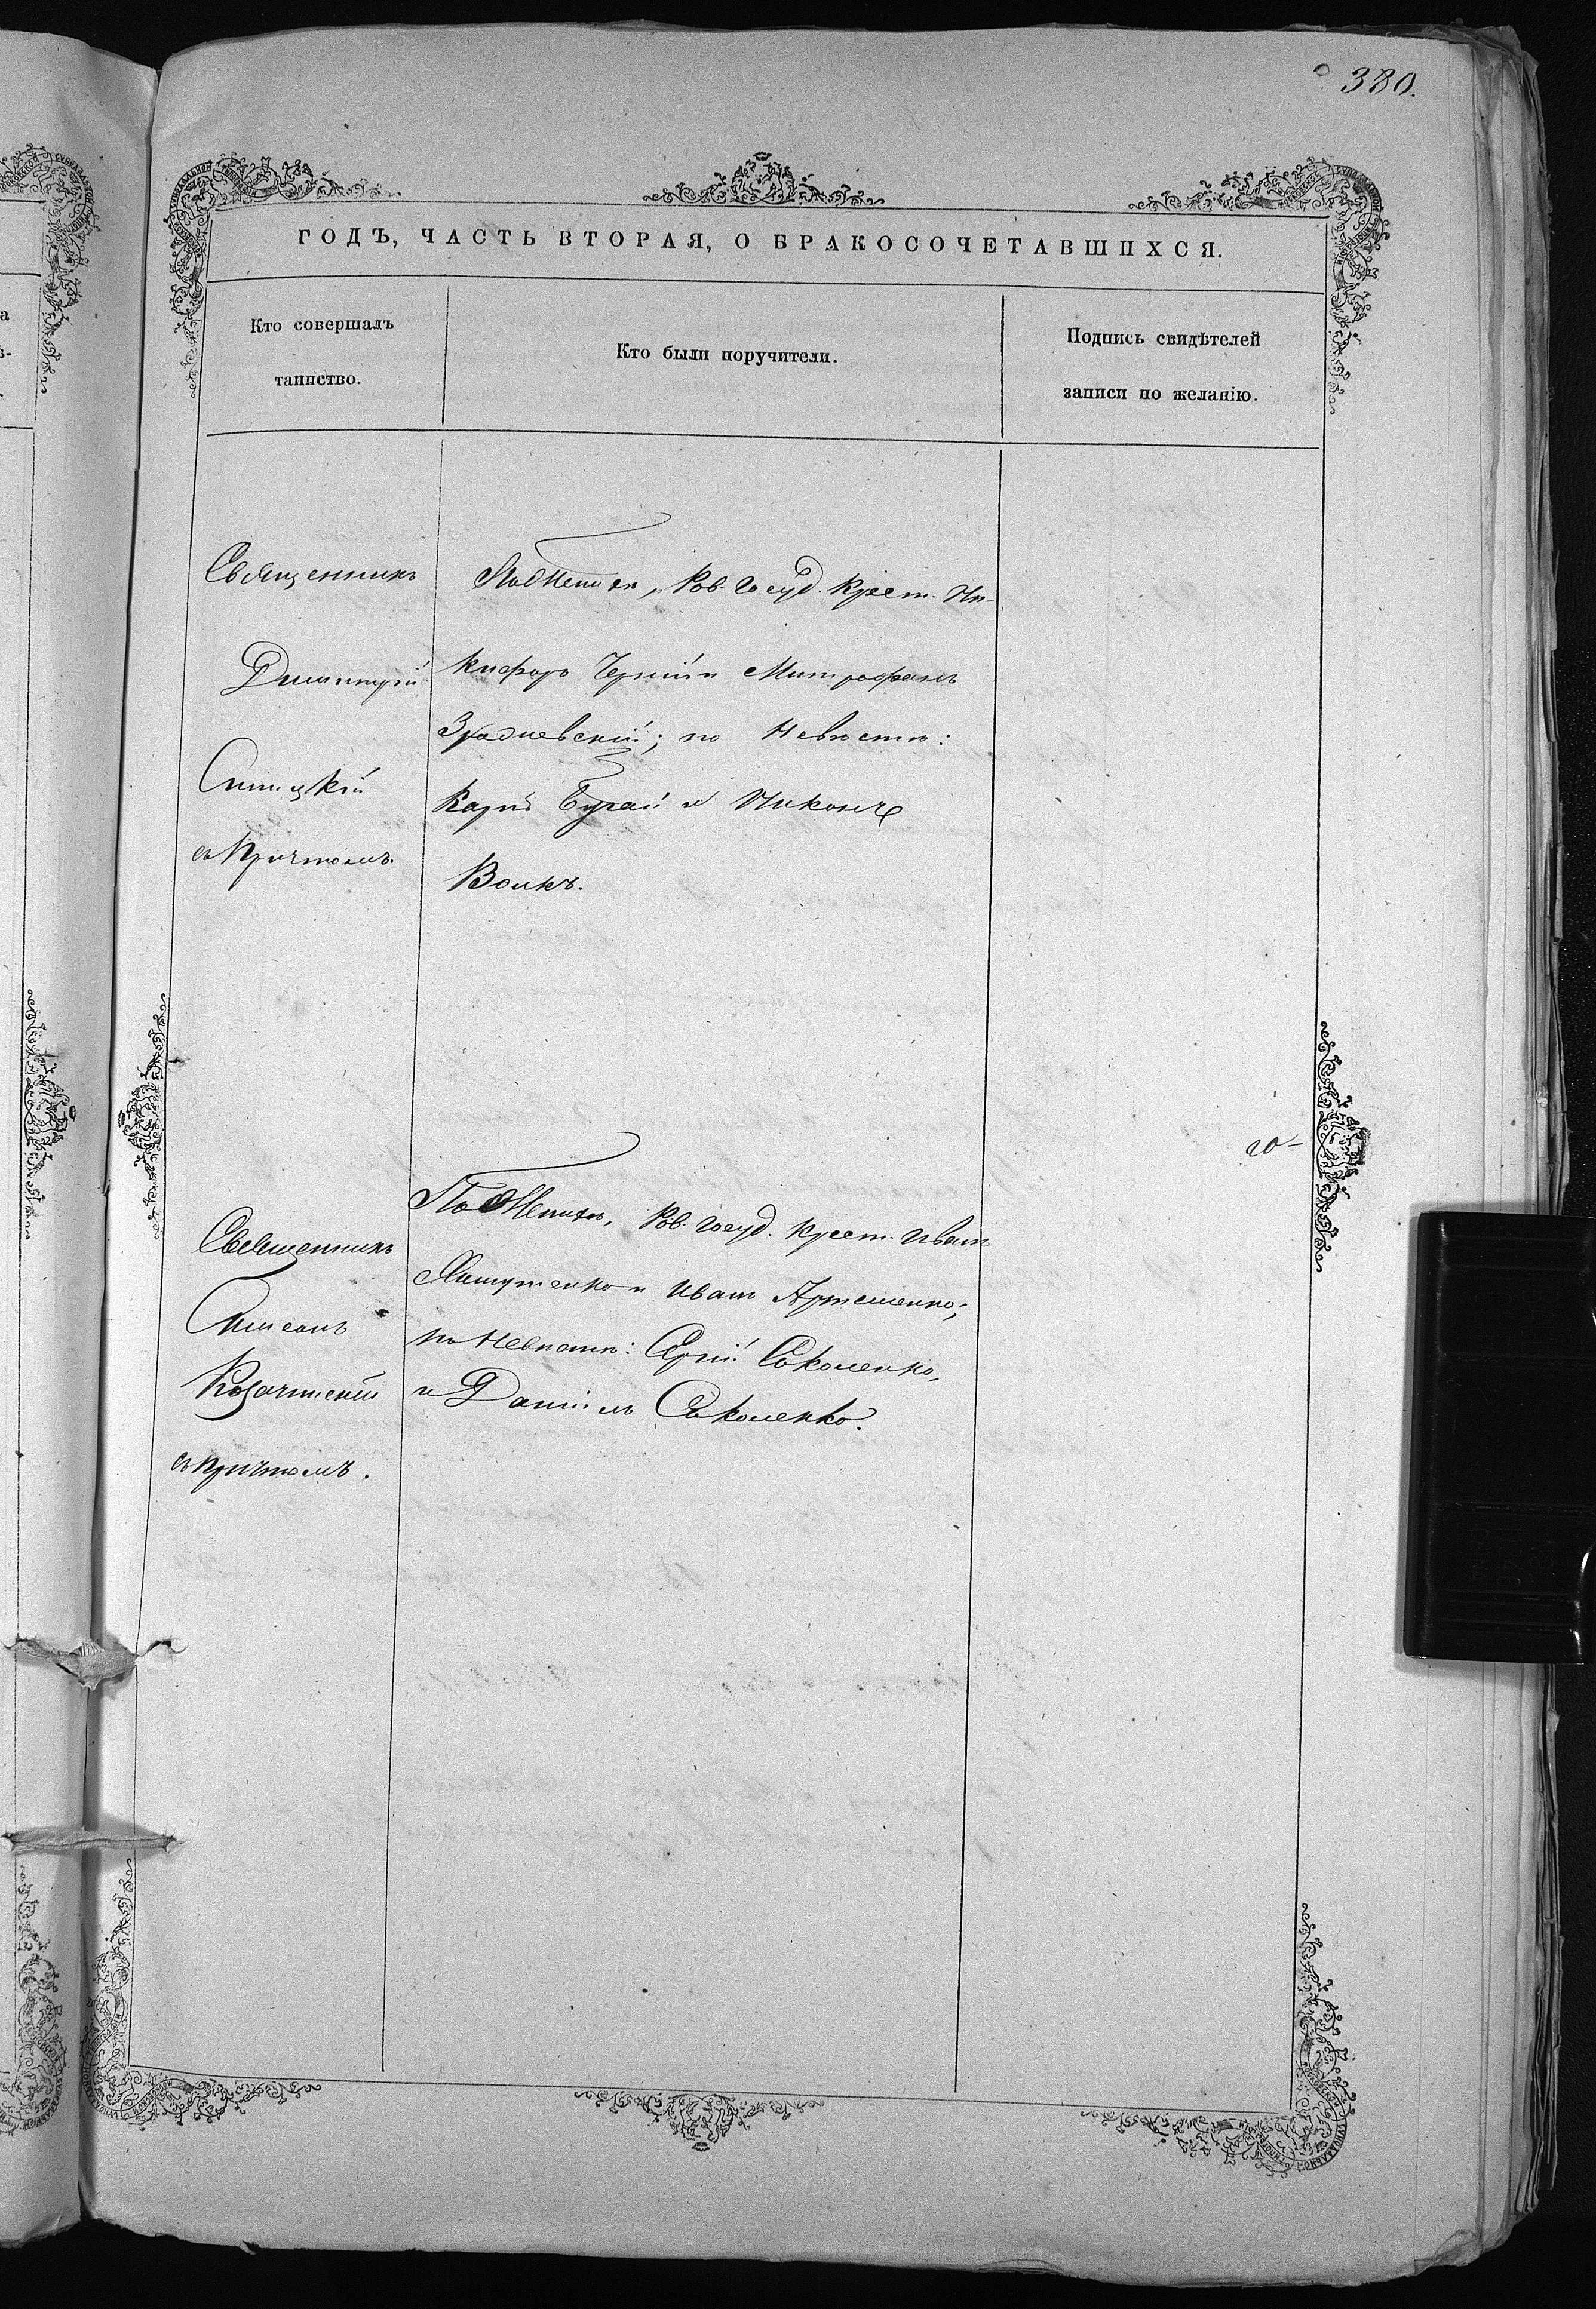 380.
ГОДЪ, ЧАСТЬ ВТОРАЯ, О БРАКОСОЧЕТАВШИХСЯ.
Кто совершалъ
таинство.
Кто были поручители.
Подпись свидѣтелей
записи по желанію.
Священникъ
Димитрій
Ситицкій
съ Причтомъ.
По Женихѣ, Ков. Госуд. Крест. Ни-
кифоръ Черній и Митрофанъ
по Невѣстѣ:
Карпъ Бугай и Никонъ
Волкъ.
Священникъ
Симеонъ
съ Причтомъ.
По Женихѣ, Ков. Госуд. Крест. Иванъ
и Иванъ Артеменко;
по Невѣстѣ: Сергій Соколенко,
и Даніилъ Соколенко.